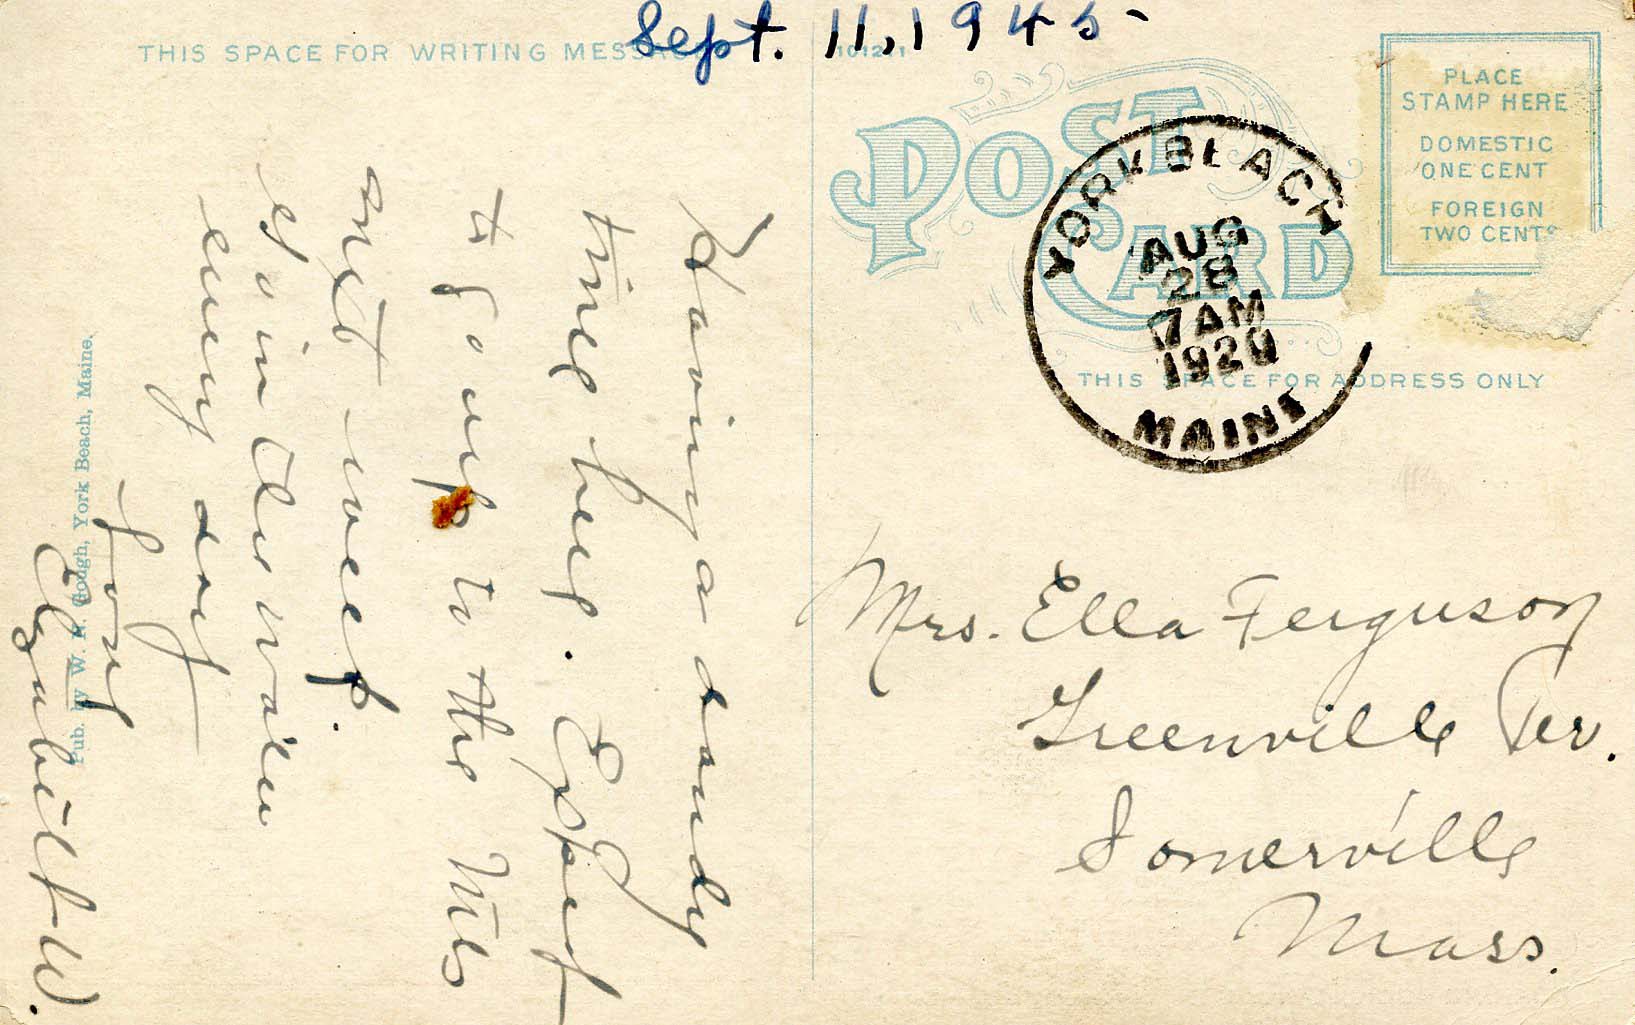 Sept. 11, 1945
THIS SPACE FOR WRITING MESSAGE
Having a dandy
time here. Expect
to go up to the Mts
next week.
Go in the water
every day
Love
Elizabeth W.
Pub. by W. H. Gough, York Beach, Maine.
POST CARD
PLACE
STAMP HERE
DOMESTIC
ONE CENT
FOREIGN
TWO CENTS
YORK BEACH
AUG
28
7 AM
1920
MAINE
THIS SPACE FOR ADDRESS ONLY
Mrs. Ella Ferguson
Greenville Ter.
Somerville
Mass.